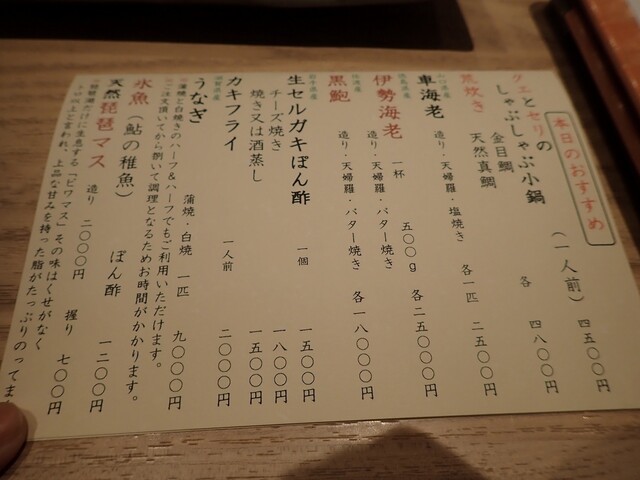 本日のおすすめ
クエとセリの
しゃぶしゃぶ小鍋 (一人前) 四五〇〇円
荒炊き 金目鯛
天然真鯛 各 四八〇〇円
山口県産
車海老 造り・天婦羅・塩焼き 各一匹 二五〇〇円
徳島県産
伊勢海老 一杯 五〇〇g 各二五〇〇〇円
造り・天婦羅・バター焼き
黒鮑 造り・天婦羅・バター焼き 各一八〇〇〇円
岩手県産
生セルガキぽん酢 一個 一五〇〇円
チーズ焼き 一八〇〇円
焼き又は酒蒸し 一五〇〇円
カキフライ 一人前 二〇〇〇円
うなぎ 蒲焼・白焼 一匹 九〇〇〇円
※蒲焼と白焼きのハーフ&ハーフでもご利用いただけます。
※ご注文頂いてから捌いて調理となるためお時間がかかります。
氷魚(鮎の稚魚) ぽん酢 一二〇〇円
天然琵琶マス 造り 二〇〇〇円 握り 七〇〇円
琵琶湖だけに生息する「ビワマス」その味はくせがなく
トロ以上と言われ、上品な甘みを持った脂がたっぷりのってま